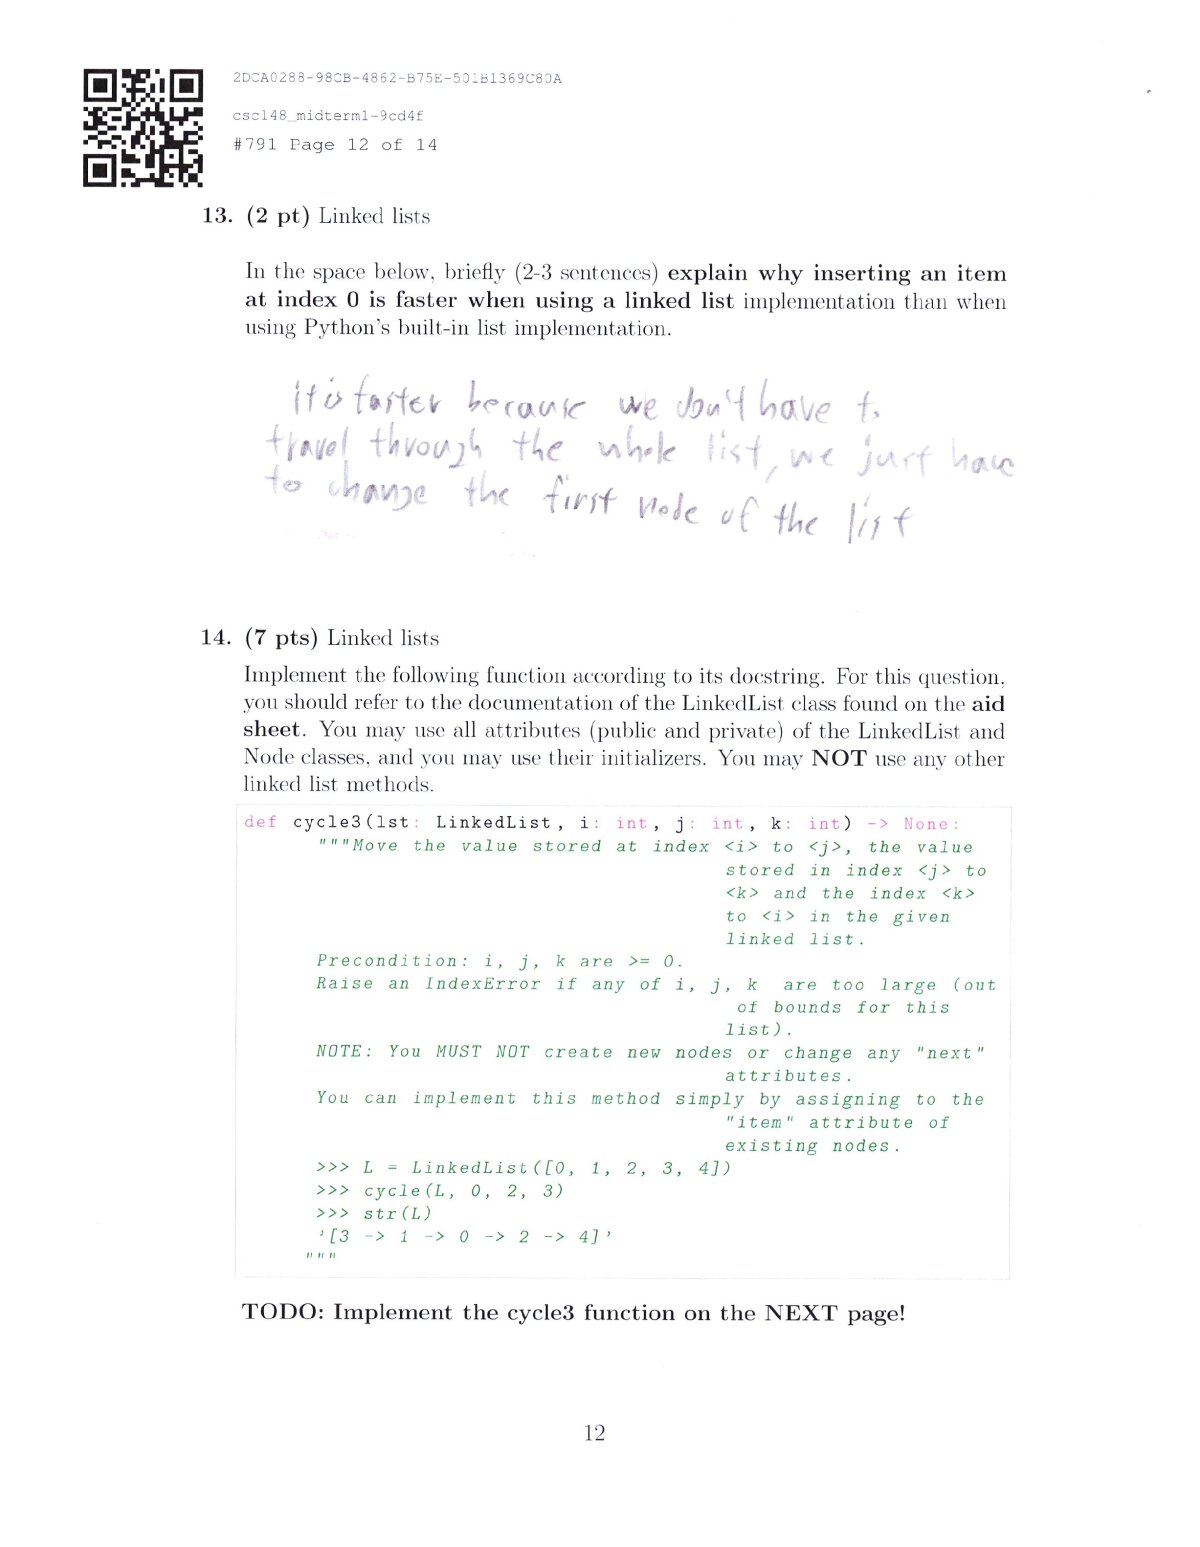 2DCA0288-98CB-4862-B75E-501B1369C80A
csc148_midterm1-9cd4f
#791 Page 12 of 14
13. (2 pt) Linked lists
In the space below, briefly (2-3 sentences) explain why inserting an item
at index 0 is faster when using a linked list implementation than when
using Python's built-in list implementation.
it is faster because we don't have to
travel through the whole list, we just have
to change the first node of the list
14. (7 pts) Linked lists
Implement the following function according to its docstring. For this question,
you should refer to the documentation of the LinkedList class found on the aid
sheet. You may use all attributes (public and private) of the LinkedList and
Node classes, and you may use their initializers. You may NOT use any other
linked list methods.
def cycle3(lst: LinkedList, i: int, j: int, k: int) -> None:
"""Move the value stored at index <i> to <j>, the value
stored in index <j> to
<k> and the index <k>
to <i> in the given
linked list.
Precondition: i, j, k are >= 0.
Raise an IndexError if any of i, j, k are too large (out
of bounds for this
list).
NOTE: You MUST NOT create new nodes or change any "next"
attributes.
You can implement this method simply by assigning to the
"item" attribute of
existing nodes.
>>> L = LinkedList([0, 1, 2, 3, 4])
>>> cycle(L, 0, 2, 3)
>>> str(L)
'[3 -> 1 -> 0 -> 2 -> 4]'
"""
TODO: Implement the cycle3 function on the NEXT page!
12